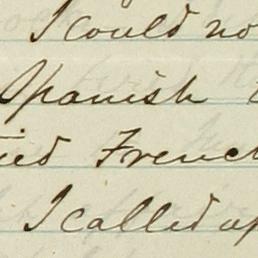 I could no
Spanish
ied French
I called up